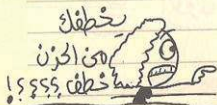 يخطفك
من الحزن
خطف ؟؟؟؟!